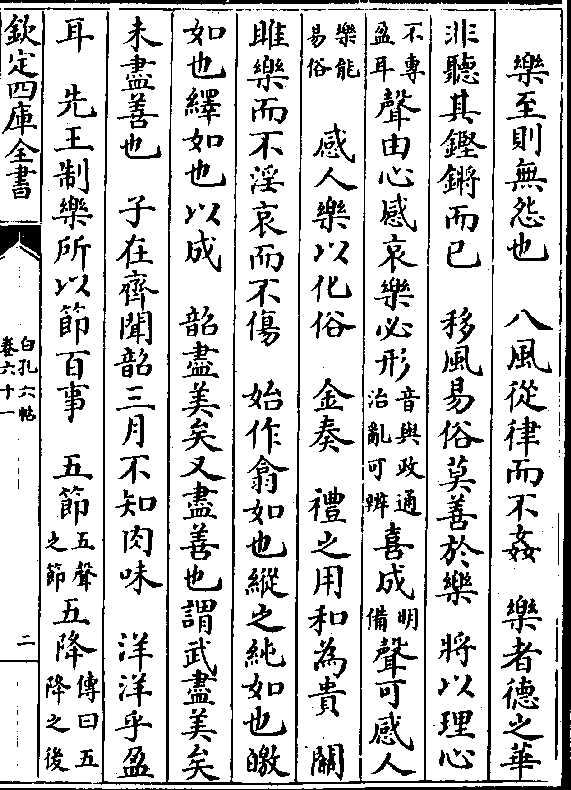 樂至則無怨也　八風從律而不姦　樂者德之華
非聽其鏗鏘而已　移風易俗莫善於樂　將以理心
不專盈耳聲由心感哀樂必形音與政通治亂可辨喜成明備聲可感人
樂能易俗　感人樂以化俗　金奏　禮之用和為貴　關
雎樂而不淫哀而不傷　始作翕如也縱之純如也皦
如也繹如也以成　韶盡美矣又盡善也謂武盡美矣
未盡善也　子在齊聞韶三月不知肉味　洋洋乎盈
耳　先王制樂所以節百事　五節五聲之節五降傳曰五降之後
欽定四庫全書
白孔六帖
卷六十一
二